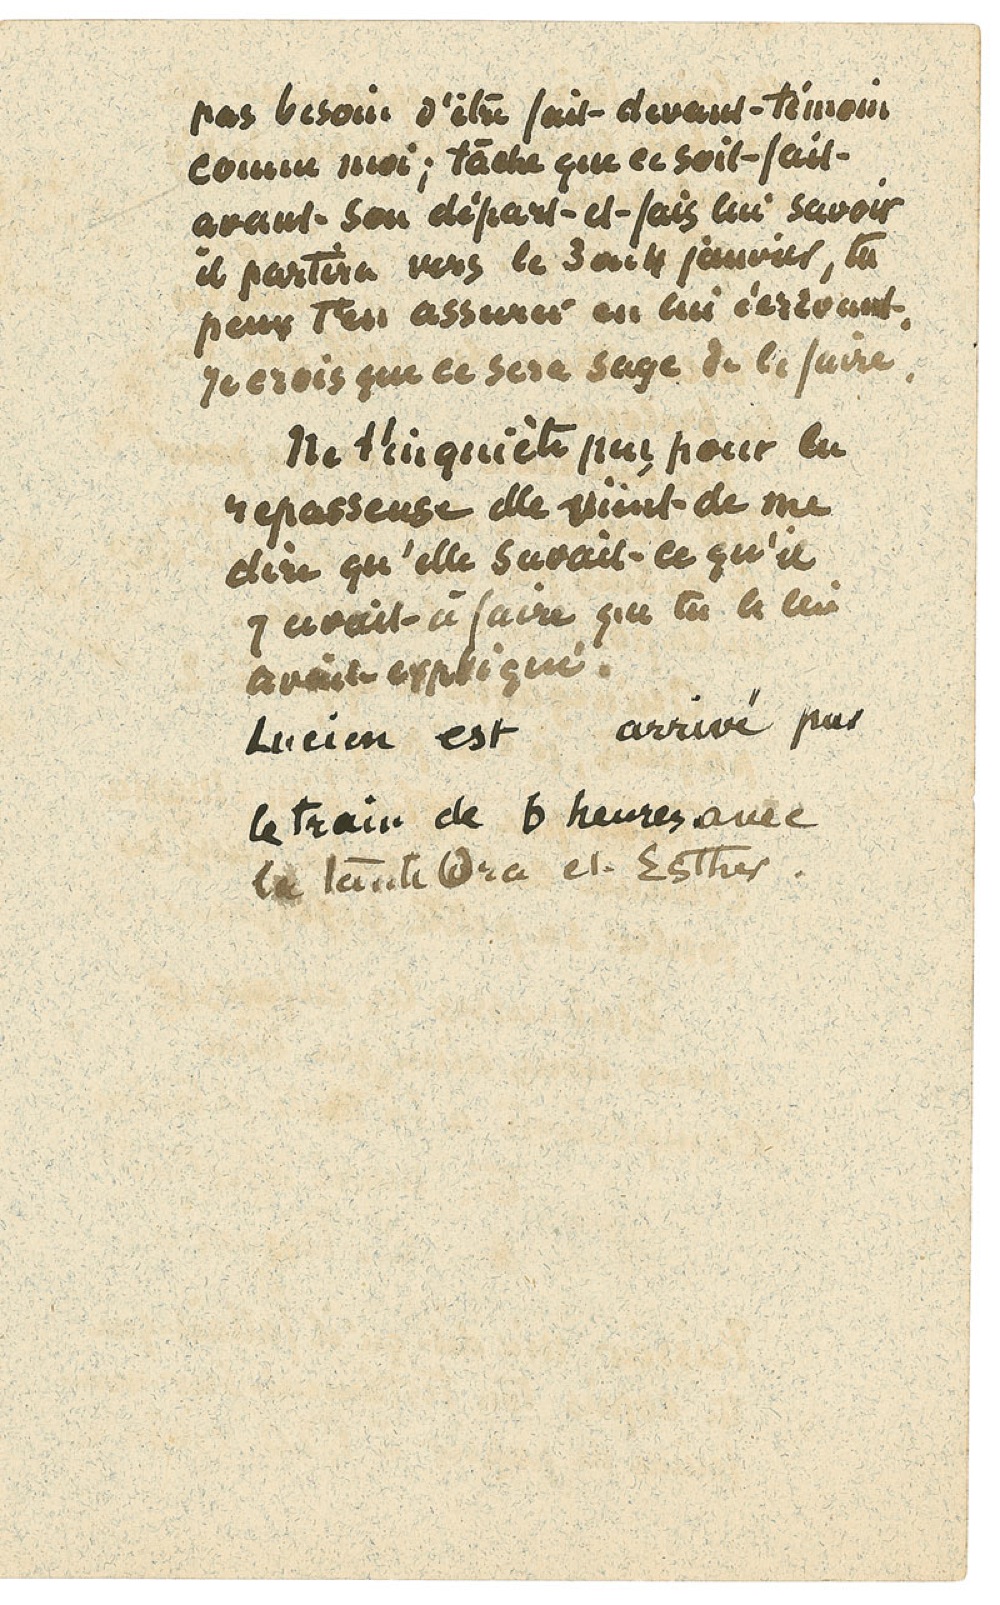 pas besoin d'être fait devant témoin
comme moi; tâche que ce soit fait
avant son départ et fais lui savoir
il partira vers le 3 ou 4 janvier, tu
peux t'en assurer en lui écrivant.
je crois que ce sera sage de le faire.
Ne t'inquiète pas pour la
repasseuse elle vient de me
dire qu'elle savait ce qu'il
y avait à faire que tu le lui
avait expliqué.
Lucien est arrivé par
le train de 6 heures avec
la tante Ora et Esther.